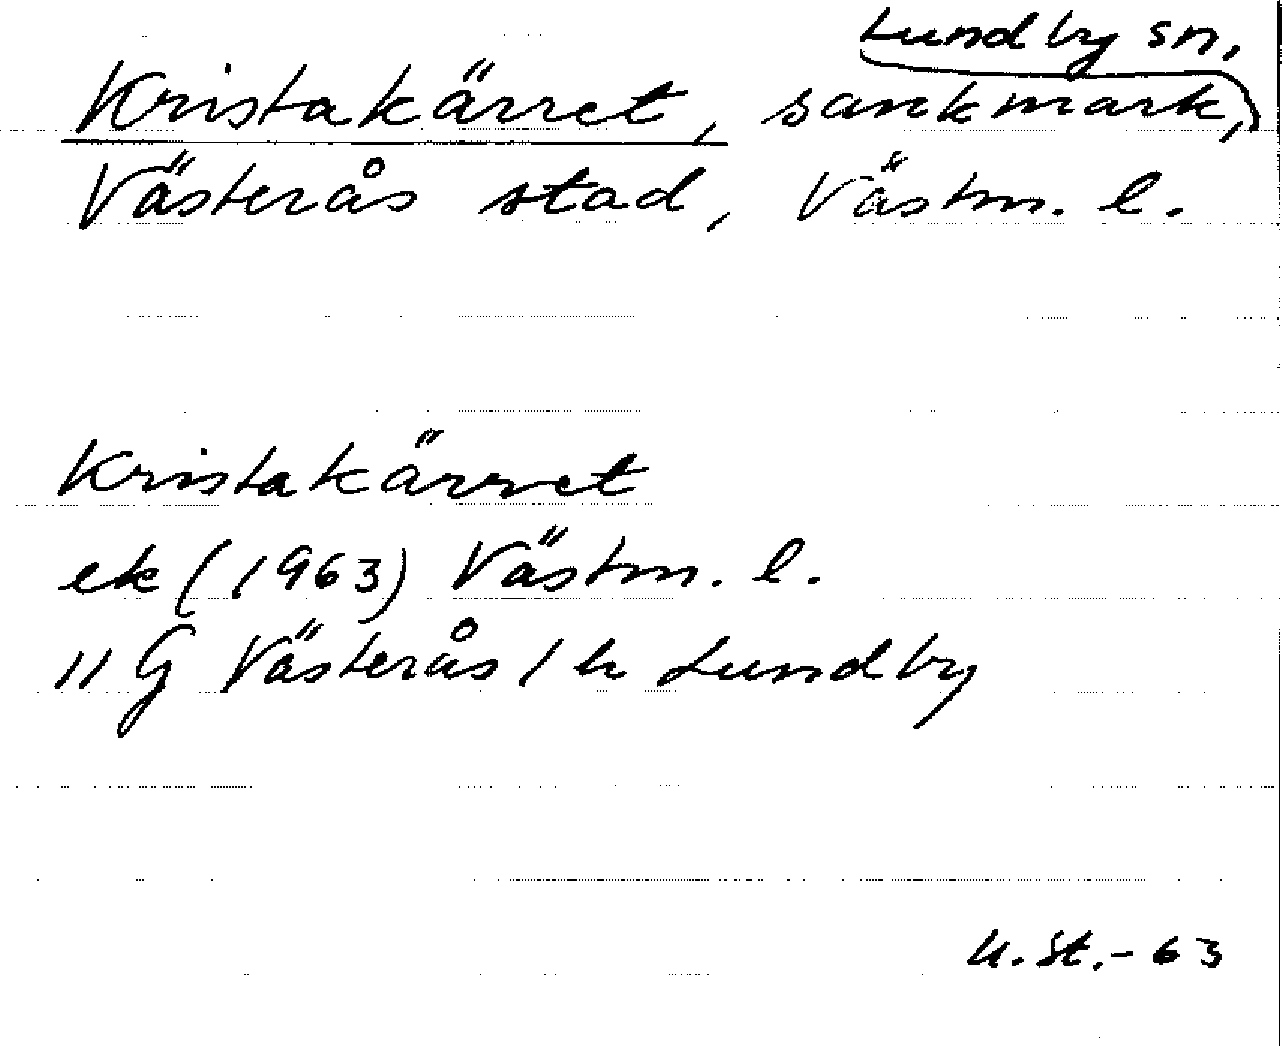 Lundby sn,
Kristakärret, sankmark,
Västerås stad, Västm. l.
Kristakärret
ek (1963) Västm. l.
11 G Västerås 1 h Lundby
U. St. - 63